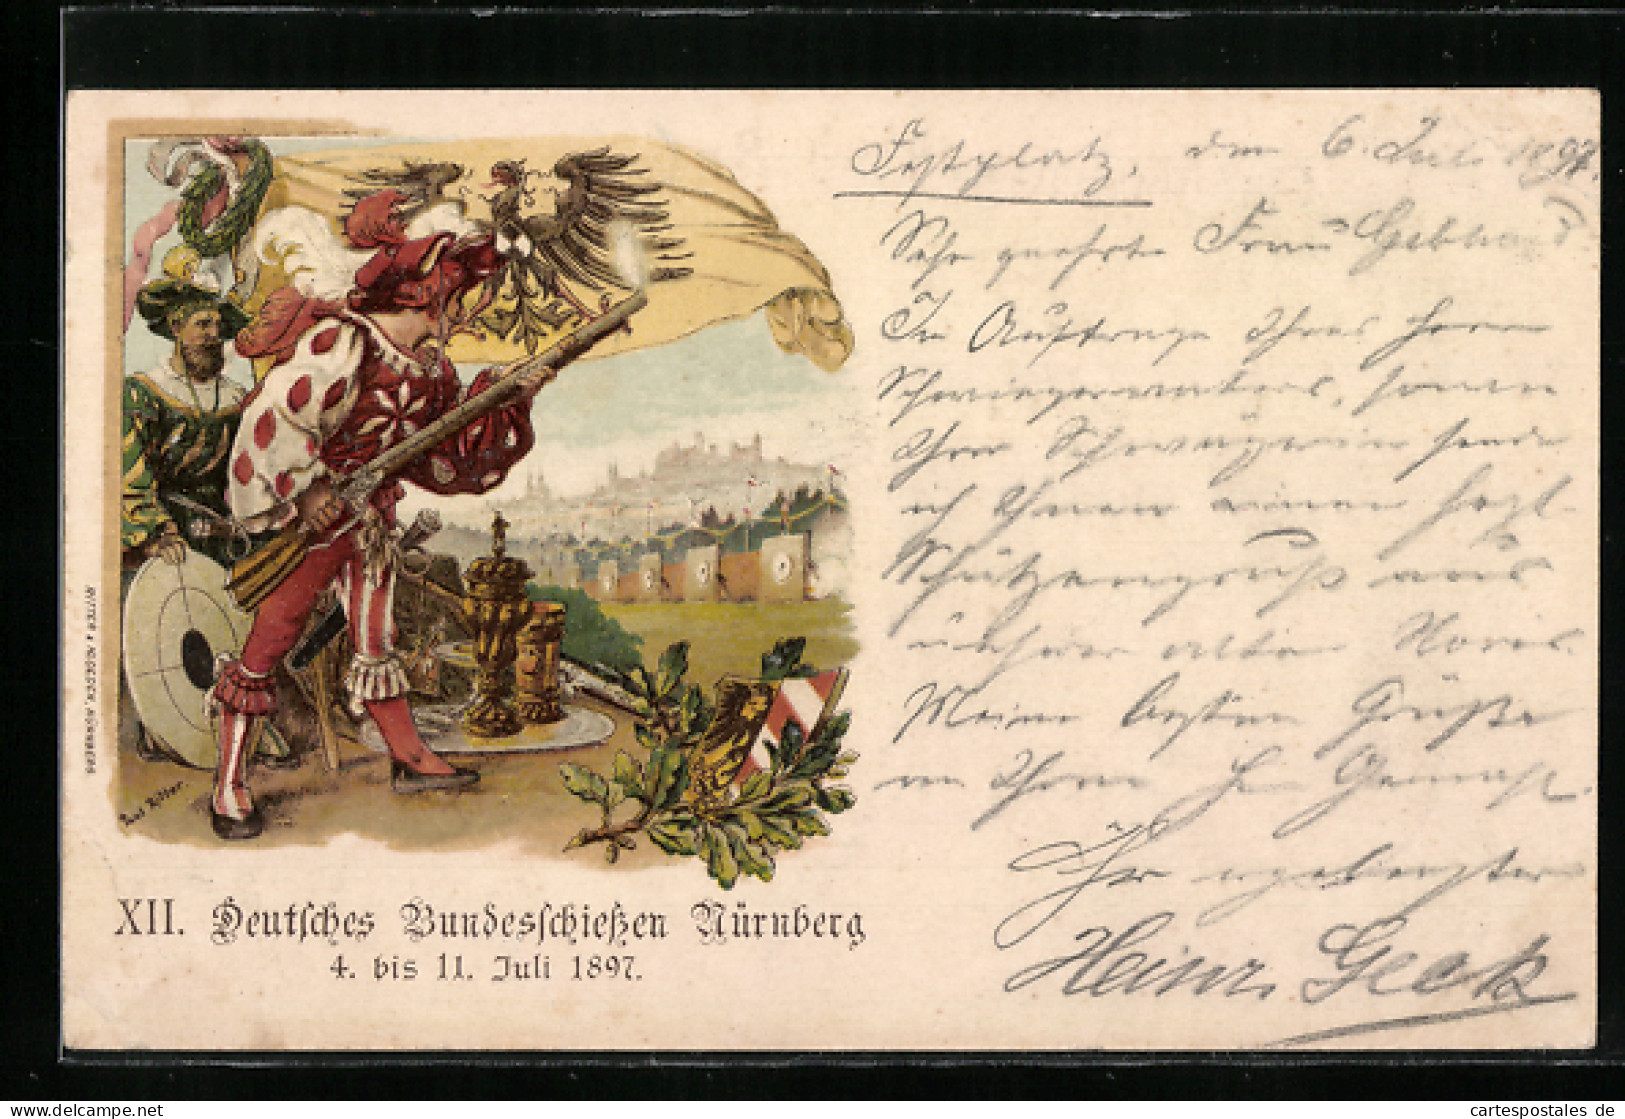 Festplatz, den 6. Juli 1897.
Sehr geehrte Frau Gebhard
Im Auftrage Ihres Herrn
Schwiegervaters, sowie
Ihrer Schwägerin sende
ich Ihnen einen herzl.
Schützengruß aus
unserer alten Noris.
Meine besten Grüße
an Ihren H. Gemahl.
Ihr ergebenster
Heinr. Geck
RITTER & KLOEDEN, NÜRNBERG
Paul Ritter.
XII. Deutsches Bundesschießen Nürnberg
4. bis 11. Juli 1897.
© Copyright
cartespostales de